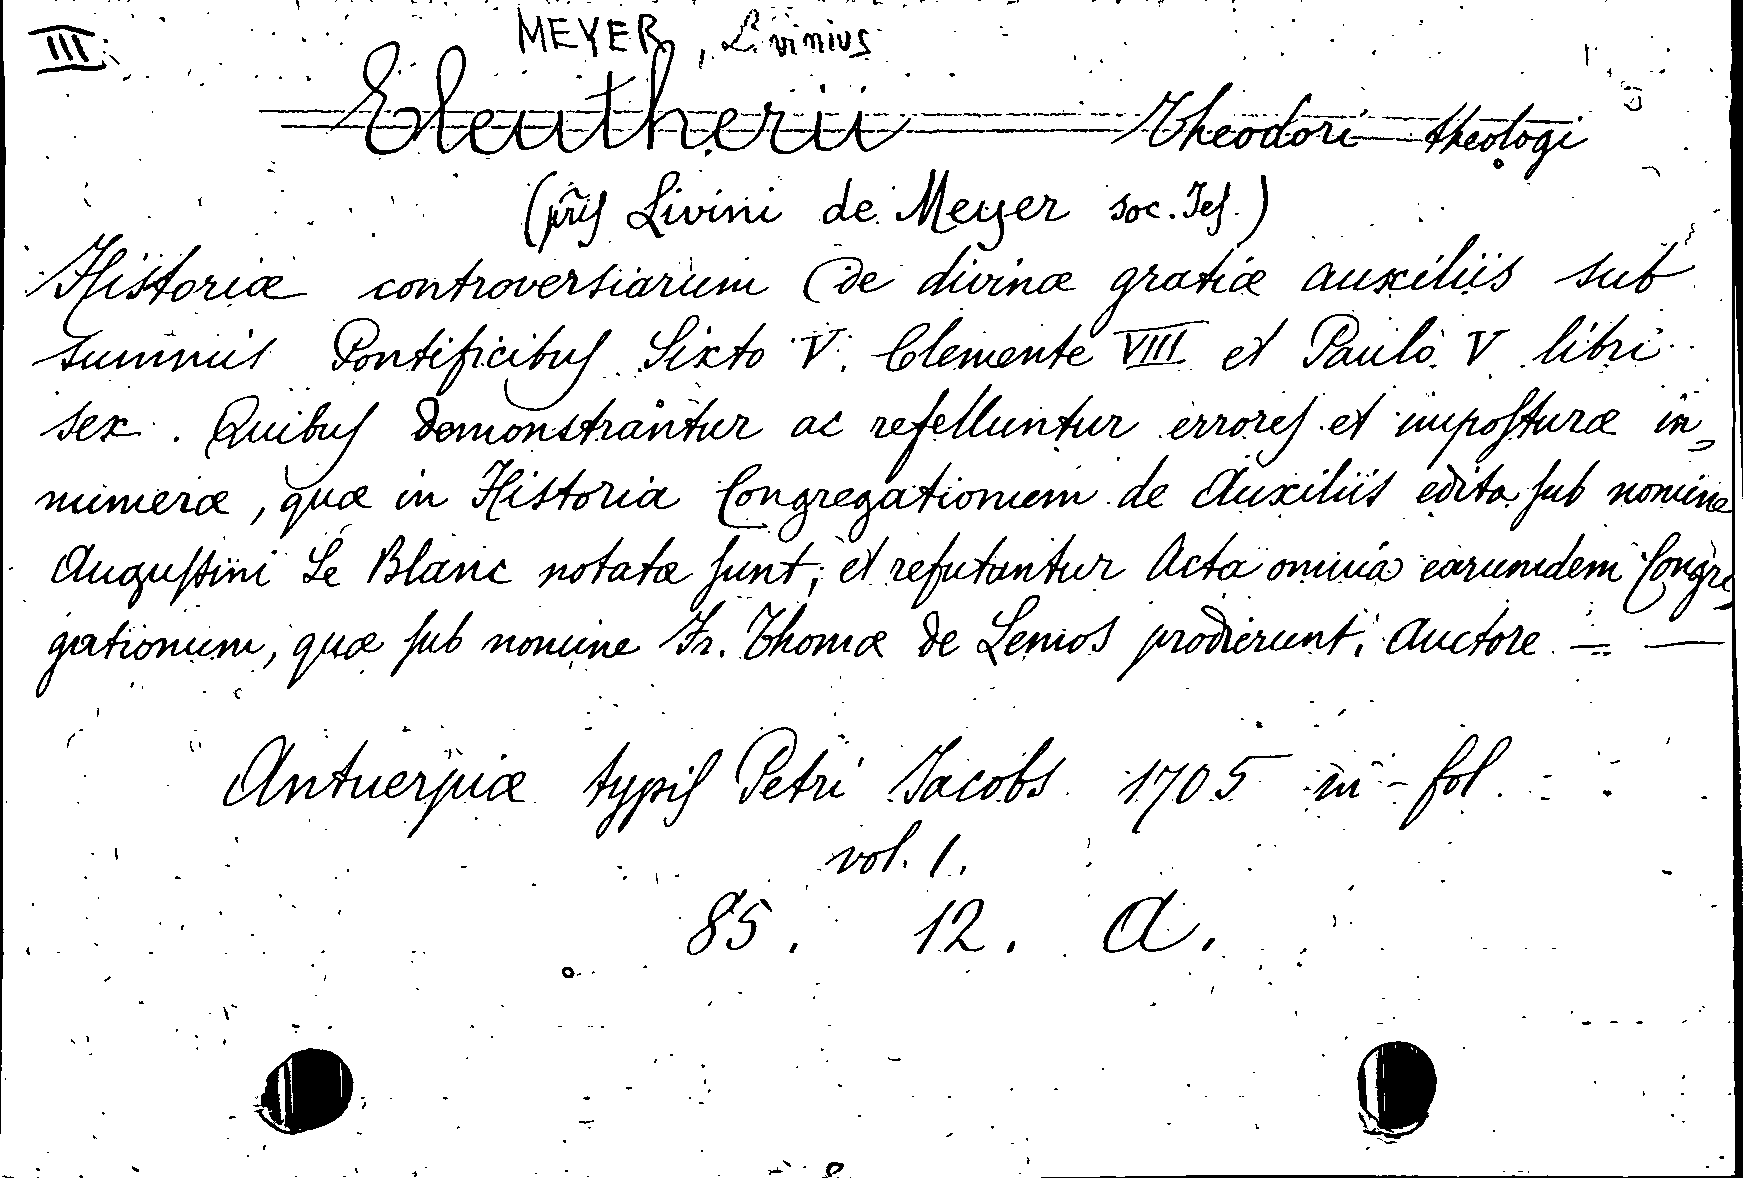 III.
MEYER, Livinius
Eleutherii Theodori theologi
(pris Livini de Meyer soc. Jes.)
Historiæ controversiarum de divinæ gratiæ auxiliis sub
summis Pontificibus Sixto V. Clemente VIII et Paulo V libri
sex. Quibus demonstrantur ac refelluntur errores et imposturæ in,
numeræ, quæ in Historia Congregationum de Auxiliis edita sub nomine
Augustini Le Blanc notatæ sunt; et refutantur Acta omnia earumdem Congre,
gationum, quæ sub nomine Fr. Thomæ de Lemos prodierunt. Auctore = —
Antuerpiæ typis Petri Jacobs 1705 in-fol.
vol. 1.
85. 12. A.